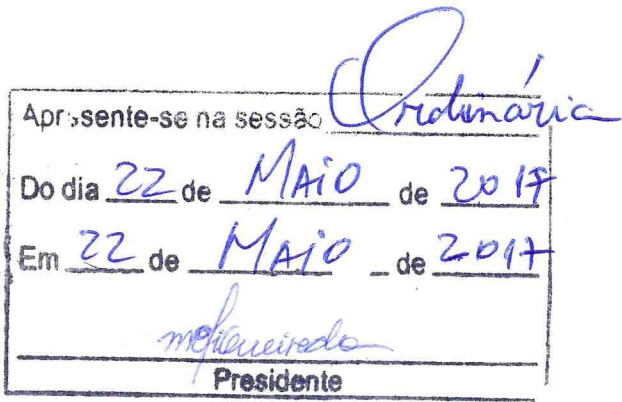 Apresente-se na sessão Ordinária
Do dia 22 de MAiO de 2017
Em 22 de MAiO de 2017
Presidente